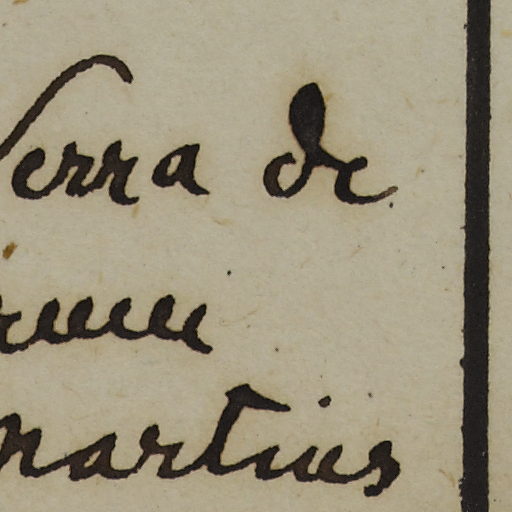 Serra de
martius